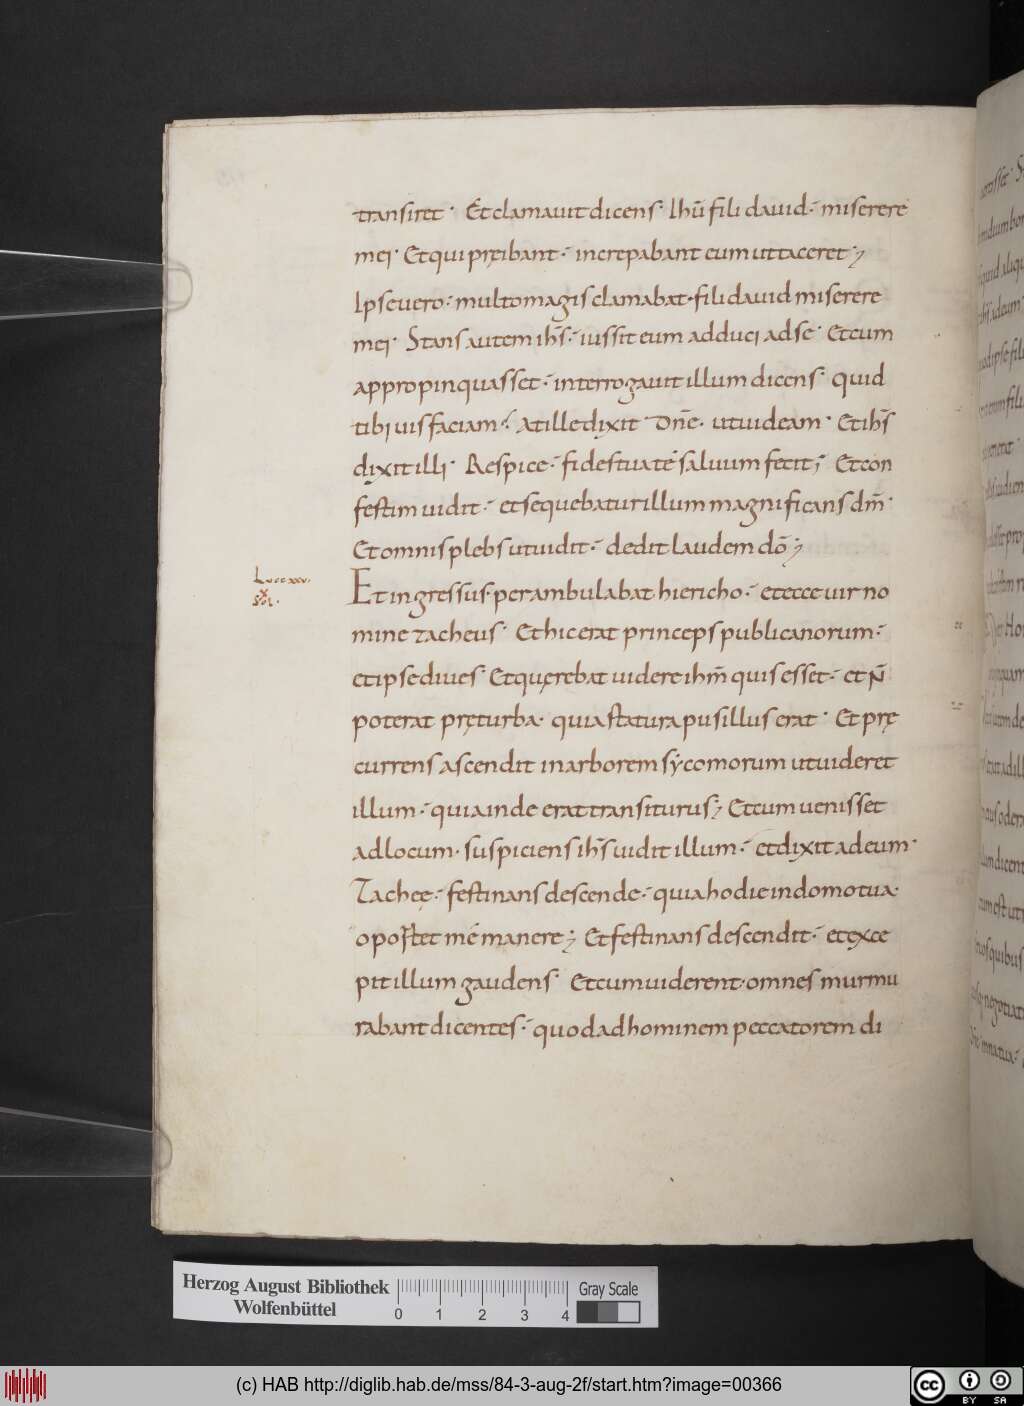 transiret· Et clamavit dicens· Ihu̅ fili david· miserere
mei· Et qui pręibant· increpabant eum ut taceret;
Ipse vero· multo magis clamabat· fili david miserere
mei· Stans autem ihs̅· iussit eum adduci ad se· Et cum
appropinquasset· interrogavit illum dicens· quid
tibi vis faciam? At ille dixit· Dn̅e· ut videam· Et ihs̅
dixit illi· Respice· fides tua té salvum fecit; Et con
festim vidit· et sequebatur illum magnificans dm̅·
Et omnis plebs ut vidit· dedit laudem do̅;
Et ingressus· perambulabat hiericho· et ecce vir no
mine zacheus· Et hic erat princeps publicanorum·
et ipse dives· Et quęrebat videre ihm̅ quis esset· et n̅
poterat prę turba· quia statura pusillus erat· Et prę
currens ascendit in arborem sycomorum ut videret
illum· quia inde erat transiturus; Et cum venisset
ad locum· suspiciens ihs̅ vidit illum· et dixit ad eum·
Zachee· festinans descende· quia hodie in domo tua·
oportet mé manere; Et festinans descendit· et exce
pit illum gaudens· Et cum viderent· omnes murmu
rabant dicentes· quod ad hominem peccatorem di
Herzog August Bibliothek
Wolfenbüttel
0 1 2 3 4
Gray Scale
(c) HAB http://diglib.hab.de/mss/84-3-aug-2f/start.htm?image=00366
cc BY SA